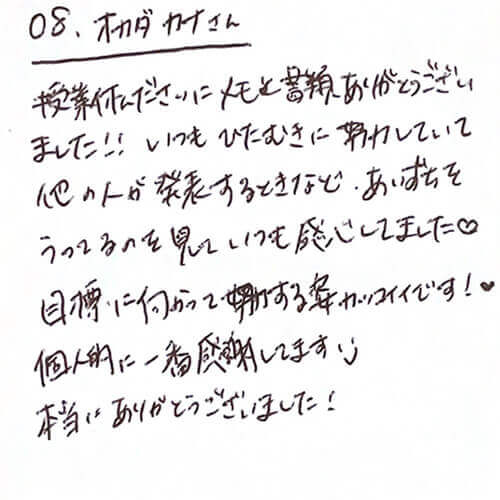 08. オカダ カナさん
授業休んださいにメモと書類ありがとうござい
ました!! いつも ひたむきに 努力していて
他の人が 発表するときなど、あいずちを
うってるのを見て いつも感心してました♡
目標に向かって 努力する姿 カッコイイです!♥
個人的に 一番感謝してます
本当に ありがとうございました!